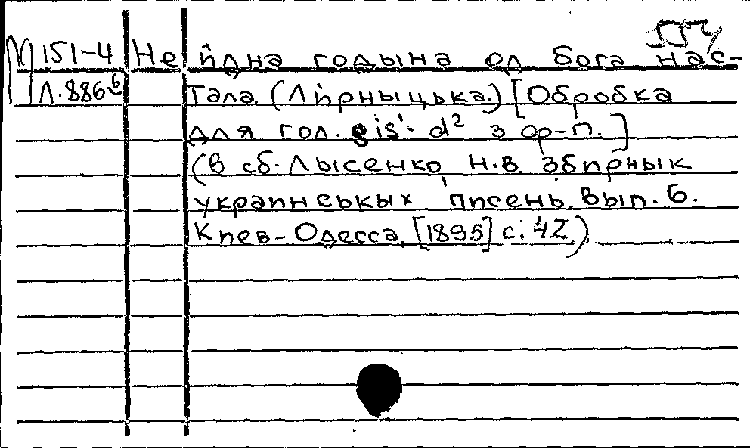 М 151-4 Не йдна годына од бога нас-
Л.886б тала. (Лирныцька.) [Обробка
для гол. gis¹- d² з ор-п.]
(в сб. Лысенко Н.В. Збирнык
украинськых писень. Вып. 6.
Киев-Одесса, [1895] с. 42)